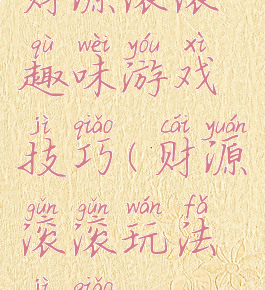 财源滚滚
qù wèi yóu xì
趣味游戏
jì qiǎo cái yuán
技巧(财源
gǔn gǔn wán fǎ
滚滚玩法
jì qiǎo